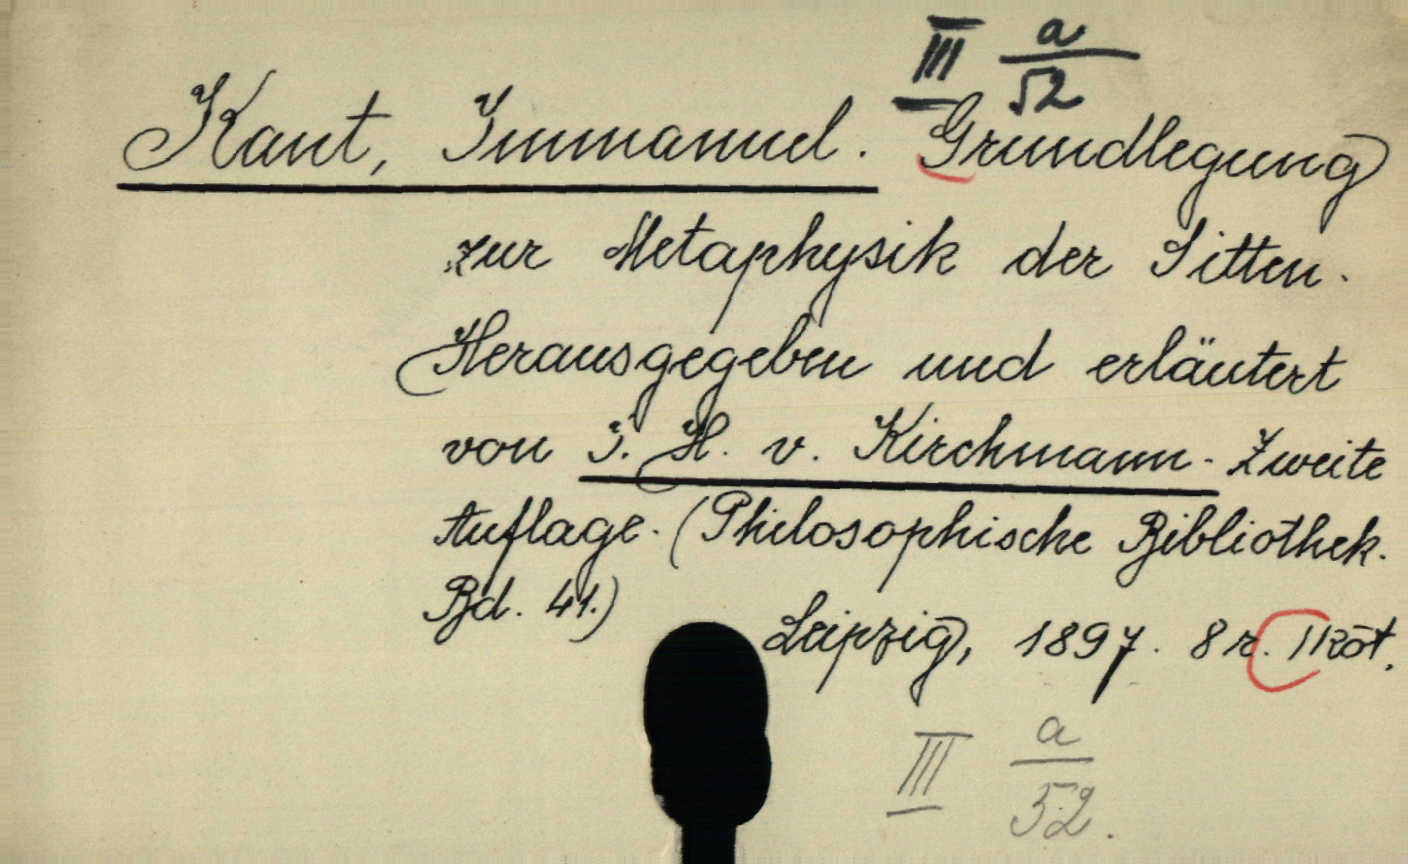 III a/52
Kant, Immanuel. Grundlegung
zur Metaphysik der Sitten.
Herausgegeben und erläutert
von J. H. v. Kirchmann. Zweite
Auflage. (Philosophische Bibliothek.
Bd. 41.)
Leipzig, 1897. 8r. 1 köt.
III a/52.